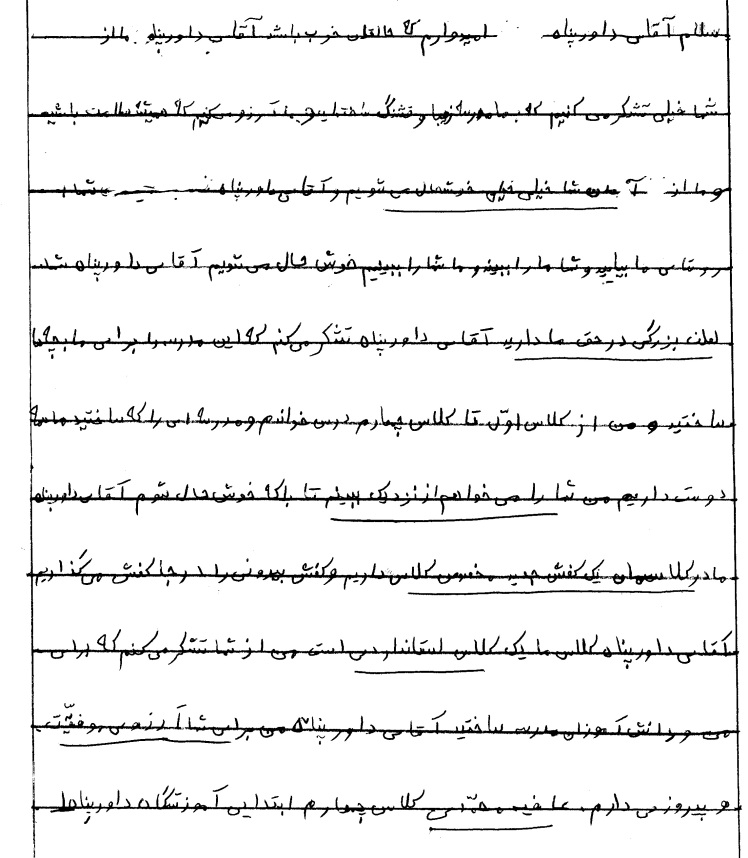 سلام آقای داورپناه امیدوارم که حالتان خوب باشد آقای داورپناه ما از
شما خیلی تشکر می کنیم که به ما مدرسه زیبا و قشنگ ساختید و ما آرزو می کنیم که همیشه سلامت باشید
و ما از آمدن شما خیلی خیلی خوشحال می شویم و آقای داورپناه شما
روستای ما بیایید و شما ما را ببیند و ما شما را ببینیم خوش حال می شویم آقای داورپناه شما
لطف بزرگی در حق ما دارید آقای داورپناه تشکر می کنم که این مدرسه را برای ما بچه ها
ساختید و من از کلاس اوّل تا کلاس چهارم درس خواندم و مدرسه ای را که ساختید ما همه
دوست داریم من شما را می خواهم از نزدیک ببینم تا با که خوش حال شوم آقای داورپناه
ما در کلاسمان یک کفش جدید مخصوص کلاس داریم و کفش بیرونی را در جا کفش می گذاریم
آقای داورپناه کلاس ما یک کلاس استانداردی است من از شما تشکر می کنم که برای
من و دانش آموزان مدرسه ساختید آقای داورپناه من برای شما آرزوی موفقیّت
و پیروزی دارم. کلاس چهارم ابتدایی آموزشگاه داورپناه